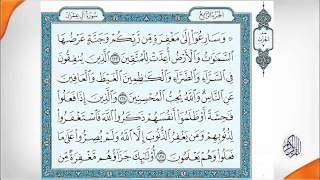 سُورَةُ آلِ عِمۡرَانَ
الجُزۡءُ الرَّابِعُ
۞ وَسَارِعُوٓاْ إِلَىٰ مَغۡفِرَةٖ مِّن رَّبِّكُمۡ وَجَنَّةٍ عَرۡضُهَا
ٱلسَّمَٰوَٰتُ وَٱلۡأَرۡضُ أُعِدَّتۡ لِلۡمُتَّقِينَ ١٣٣ ٱلَّذِينَ يُنفِقُونَ
فِي ٱلسَّرَّآءِ وَٱلضَّرَّآءِ وَٱلۡكَٰظِمِينَ ٱلۡغَيۡظَ وَٱلۡعَافِينَ
عَنِ ٱلنَّاسِۗ وَٱللَّهُ يُحِبُّ ٱلۡمُحۡسِنِينَ ١٣٤ وَٱلَّذِينَ إِذَا فَعَلُواْ
فَٰحِشَةً أَوۡ ظَلَمُوٓاْ أَنفُسَهُمۡ ذَكَرُواْ ٱللَّهَ فَٱسۡتَغۡفَرُواْ
لِذُنُوبِهِمۡ وَمَن يَغۡفِرُ ٱلذُّنُوبَ إِلَّا ٱللَّهُ وَلَمۡ يُصِرُّواْ عَلَىٰ مَا
فَعَلُواْ وَهُمۡ يَعۡلَمُونَ ١٣٥ أُوْلَٰٓئِكَ جَزَآؤُهُم مَّغۡفِرَةٞ مِّن